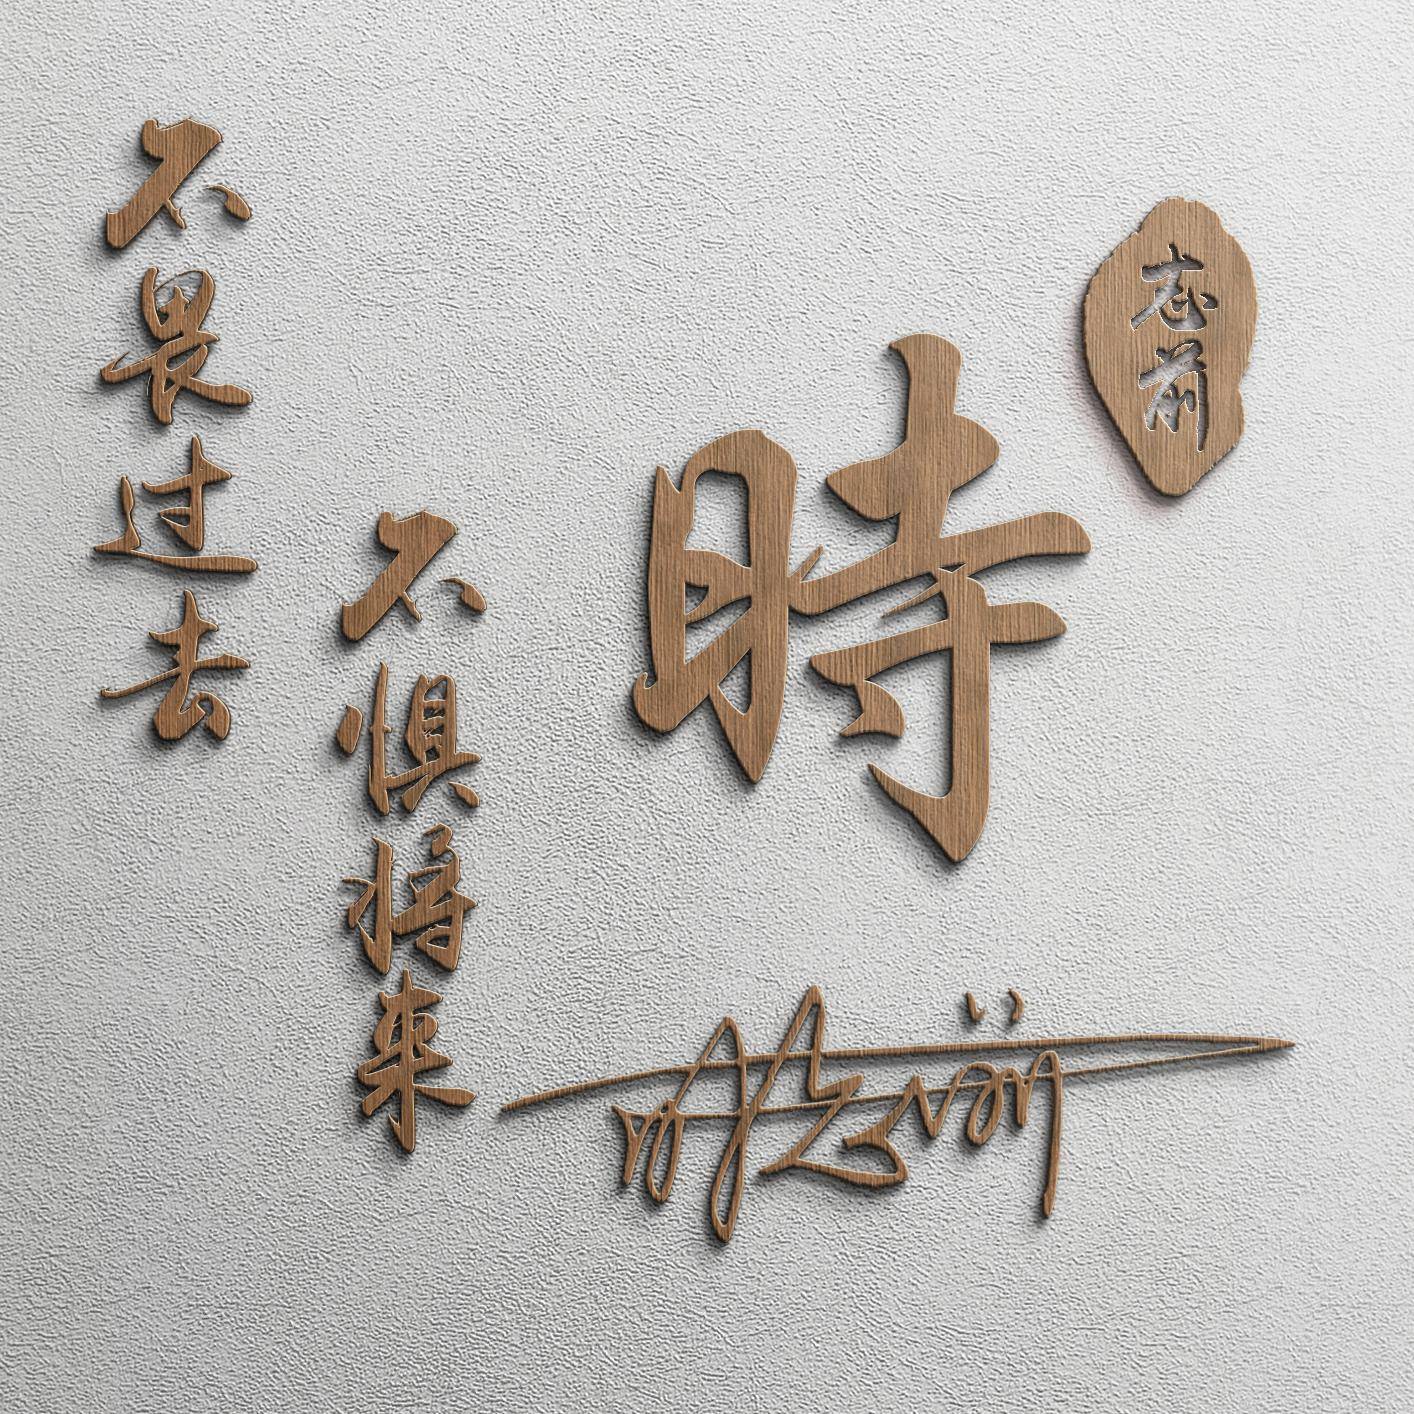 不畏过去
不惧将来
時
志前